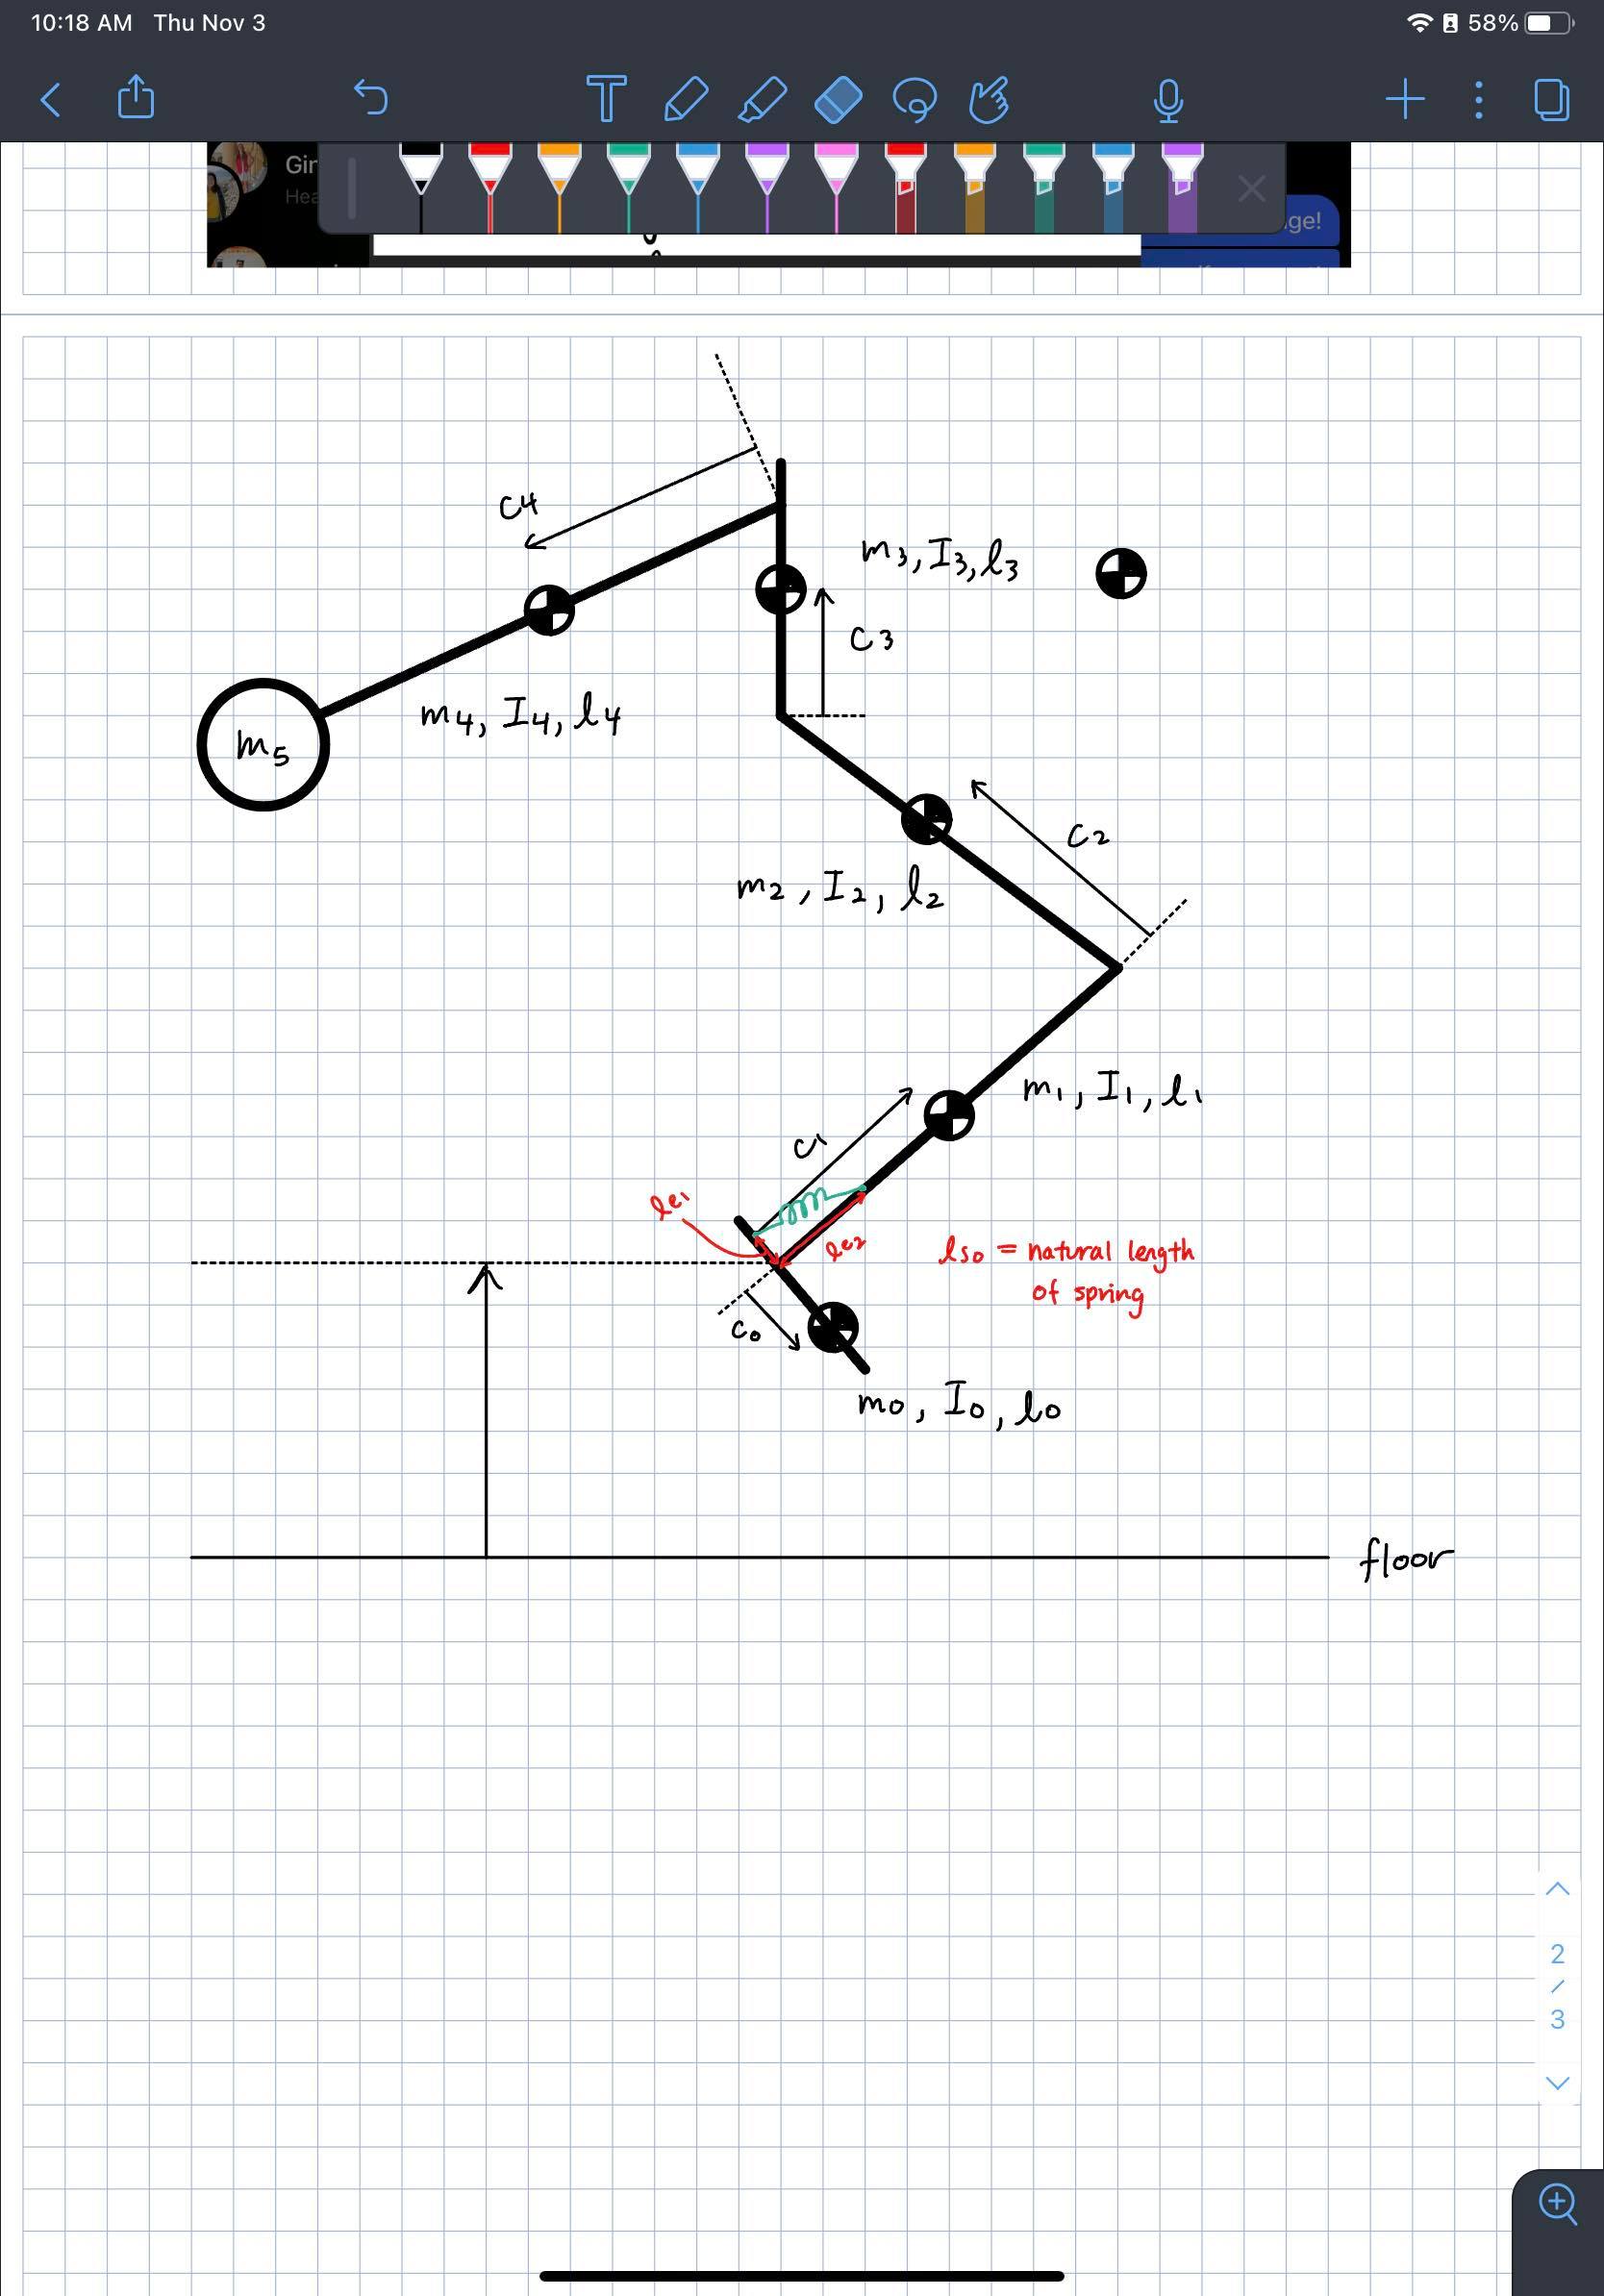 10:18 AM Thu Nov 3
58%
T
Gin
Hea
ge!
C4
m3, I3, l3
C3
m4, I4, l4
m5
C2
m2, I2, l2
m1, I1, l1
C1
le1
le2
lso = natural length
of spring
C0
m0, I0, l0
floor
2
/
3